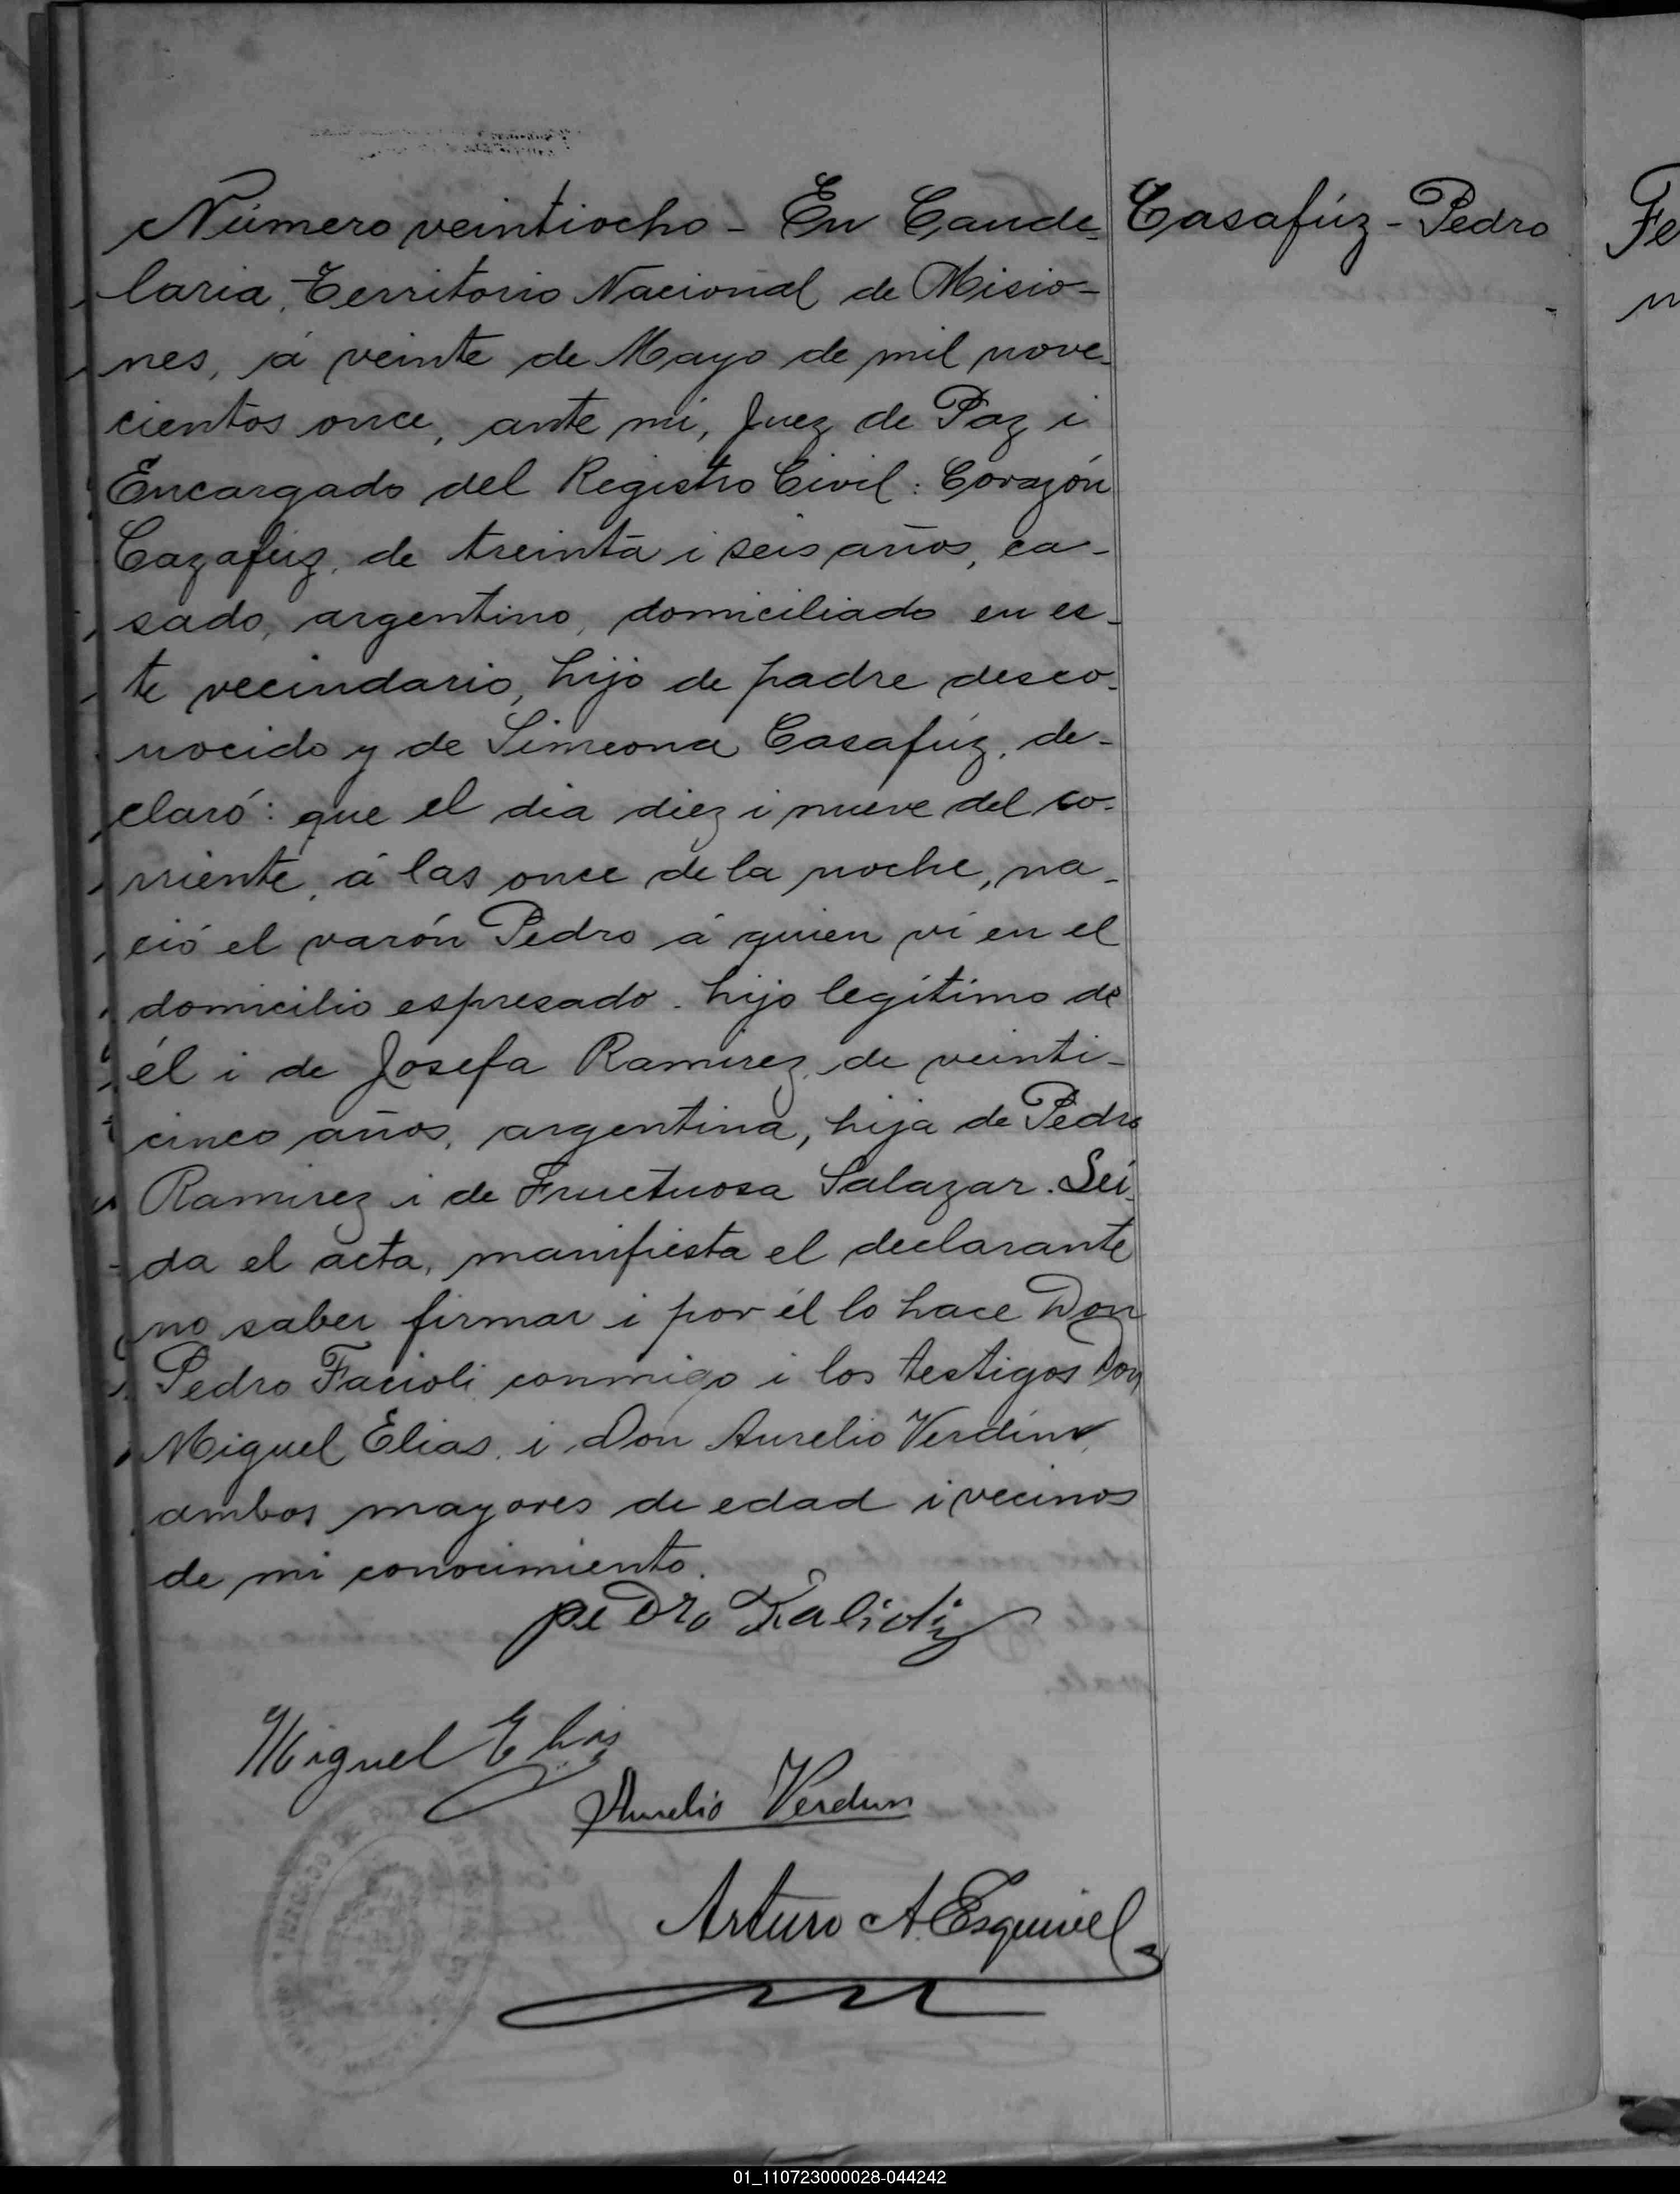 Número veintiocho - En Cande-
laria, Territorio Nacional de Misio-
nes, á veinte de Mayo de mil nove-
cientos once, ante mi, Juez de Paz i
Encargado del Registro Civil: Corazón
Cazafúz, de treinta i seis años, ca-
sado, argentino, domiciliado en es-
te vecindario, hijo de padre desco-
nocido y de Simeona Casafúz, de-
claró: que el dia diez i nueve del co-
rriente, á las once de la noche, na-
ció el varón Pedro á quien ví en el
domicilio espresado. hijo legítimo de
él i de Josefa Ramirez, de veinti-
cinco años, argentina, hija de Pedro
Ramirez i de Fructuosa Salazar. Lei-
da el acta, manifiesta el declarante
no saber firmar i por él lo hace Don
Pedro Facioli conmigo i los testigos Don
Miguel Elias i Don Aurelio Verdún
ambos mayores de edad i vecinos
de mi conocimiento.
pedro
Miguel Elias
Aurelio Verdun
Arturo A. Esquivel
Casafúz - Pedro
Fe
01_110723000028-044242